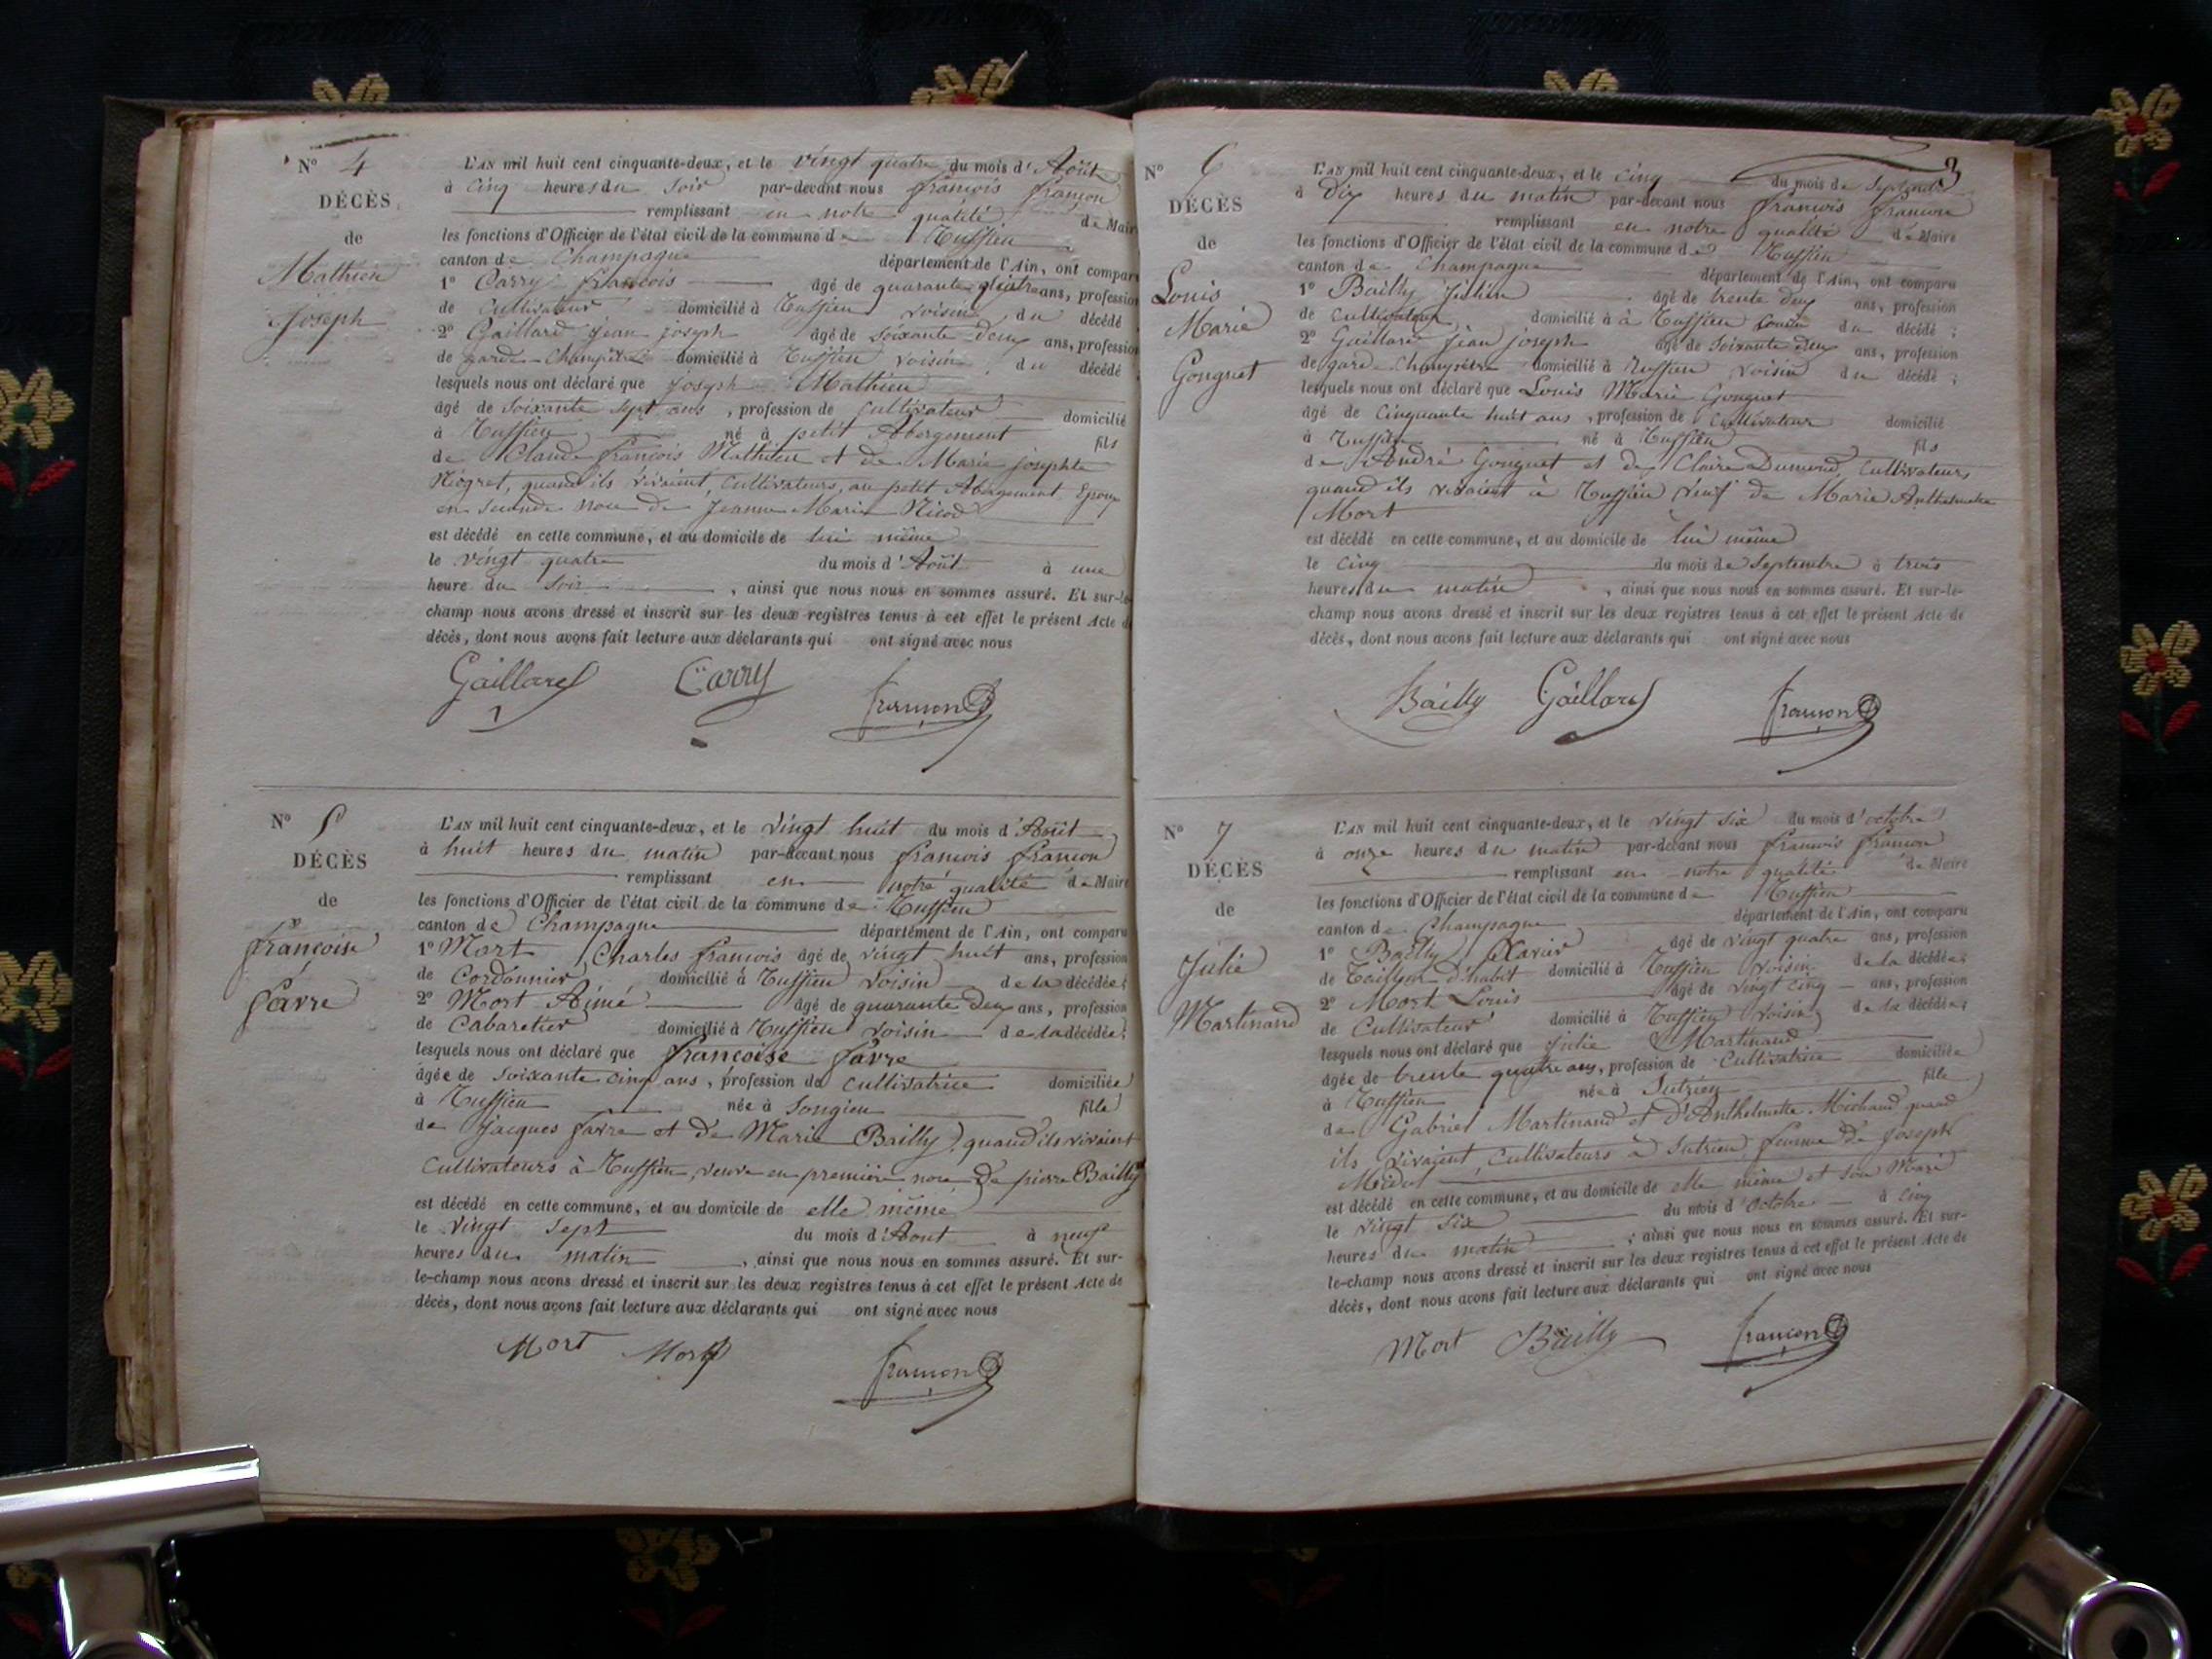 N° 4
DÉCÈS
de
Mathieu
Joseph
L'AN mil huit cent cinquante-deux, et le vingt quatre du mois d'Août
à cinq heures du soir par-devant nous françois françon
remplissant en notre qualité de Maire
les fonctions d'Officier de l'état civil de la commune de Ruffieu
canton de Champagne département de l'Ain, ont comparu
1° Carry françois âgé de quarante quatre ans, profession
de Cultivateur domicilié à Ruffieu voisin du décédé
2° Gaillard jean joseph âgé de soixante deux ans, profession
de garde-Champêtre domicilié à Ruffieu voisin du décédé
lesquels nous ont déclaré que joseph Mathieu
âgé de soixante sept ans, profession de Cultivateur domicilié
à Ruffieu né à petit Abergement fils
de Claude françois Mathieu et de Marie josephte
Niogret, quand ils vivaient, cultivateurs, au petit Abergement Epoux
en seconde noce de Jeanne Marie Nicod
est décédé en cette commune, et au domicile de lui même
le vingt quatre du mois d'Août à une
heure du soir, ainsi que nous nous en sommes assuré. Et sur-le-
champ nous avons dressé et inscrit sur les deux registres tenus à cet effet le présent Acte de
décès, dont nous avons fait lecture aux déclarants qui ont signé avec nous
Gaillard Carry françon
N° 5
DÉCÈS
de
françoise
favre
L'AN mil huit cent cinquante-deux, et le vingt huit du mois d'Août
à huit heures du matin par-devant nous françois françon
remplissant en notre qualité de Maire
les fonctions d'Officier de l'état civil de la commune de Ruffieu
canton de Champagne département de l'Ain, ont comparu
1° Mort Charles françois âgé de vingt huit ans, profession
de Cordonnier domicilié à Ruffieu voisin de la décédée;
2° Mort Aimé âgé de quarante deux ans, profession
de Cabaretier domicilié à Ruffieu voisin de la décédée;
lesquels nous ont déclaré que françoise favre
âgée de soixante cinq ans, profession de cultivatrice domiciliée
à Ruffieu née à Songieu fille
de jacques favre et de Marie Bailly, quand ils vivaient
cultivateurs à Ruffieu, veuve en première noce de pierre Bailly
est décédé en cette commune, et au domicile de elle même
le vingt sept du mois d'Aout à neuf
heures du matin, ainsi que nous nous en sommes assuré. Et sur-
le-champ nous avons dressé et inscrit sur les deux registres tenus à cet effet le présent Acte de
décès, dont nous avons fait lecture aux déclarants qui ont signé avec nous
Mort Mort françon
3
N° 6
DÉCÈS
de
Louis
Marie
Gonguet
L'AN mil huit cent cinquante-deux, et le cinq du mois de Septembre
à Dix heures du matin par-devant nous françois françon
remplissant en notre qualité de Maire
les fonctions d'Officier de l'état civil de la commune de Ruffieu
canton de Champagne département de l'Ain, ont comparu
1° Bailly Julien âgé de trente deux ans, profession
de cultivateur domicilié à à Ruffieu cousin du décédé;
2° Gaillard jean joseph âgé de soixante deux ans, profession
de garde-Champêtre domicilié à Ruffieu voisin du décédé;
lesquels nous ont déclaré que Louis Marie Gonguet
âgé de cinquante huit ans, profession de Cultivateur domicilié
à Ruffieu né à Ruffieu fils
de André Gonguet et de Claire Dumond, cultivateurs
quand ils vivaient à Ruffieu veuf de Marie Anthelmette
Mort
est décédé en cette commune, et au domicile de lui même
le cinq du mois de Septembre à trois
heures du matin, ainsi que nous nous en sommes assuré. Et sur-le-
champ nous avons dressé et inscrit sur les deux registres tenus à cet effet le présent Acte de
décès, dont nous avons fait lecture aux déclarants qui ont signé avec nous
Bailly Gaillard françon
N° 7
DÉCÈS
de
Julie
Martinand
L'AN mil huit cent cinquante-deux, et le vingt six du mois d'octobre
à onze heures du matin par-devant nous françois françon
remplissant en notre qualité de Maire
les fonctions d'Officier de l'état civil de la commune de Ruffieu
canton de Champagne département de l'Ain, ont comparu
1° Bailly Xavier âgé de vingt quatre ans, profession
de Tailleur d'habit domicilié à Ruffieu voisin de la décédée;
2° Mort Louis âgé de vingt cinq ans, profession
de Cultivateur domicilié à Ruffieu voisin de la décédée;
lesquels nous ont déclaré que julie Martinand
âgée de trente quatre ans, profession de Cultivatrice domiciliée
à Ruffieu née à Sutrieu fille
de Gabriel Martinand et d'Anthelmette Michaud quand
ils vivaient, cultivateurs à Sutrieu, femme de joseph
est décédé en cette commune, et au domicile de elle même et son Mari
le vingt six du mois d'Octobre à cinq
heures du matin; ainsi que nous nous en sommes assuré. Et sur-
le-champ nous avons dressé et inscrit sur les deux registres tenus à cet effet le présent Acte de
décès, dont nous avons fait lecture aux déclarants qui ont signé avec nous
Mort Bailly françon